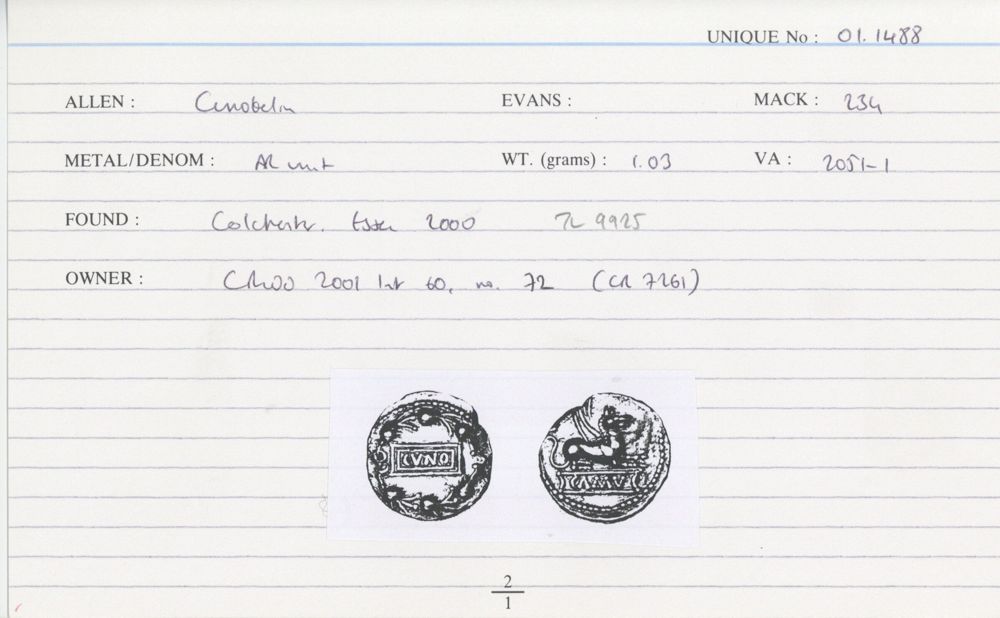 UNIQUE No : 01.1488
ALLEN : Cunobelin EVANS : MACK : 234
METAL/DENOM : AR unit WT. (grams) : 1.03 VA : 2051-1
FOUND : Colchester. Essex 2000 TL 9925
OWNER : 2001 list 60, no. 72 (CR 7261)
CVNO
CAMV
2
1